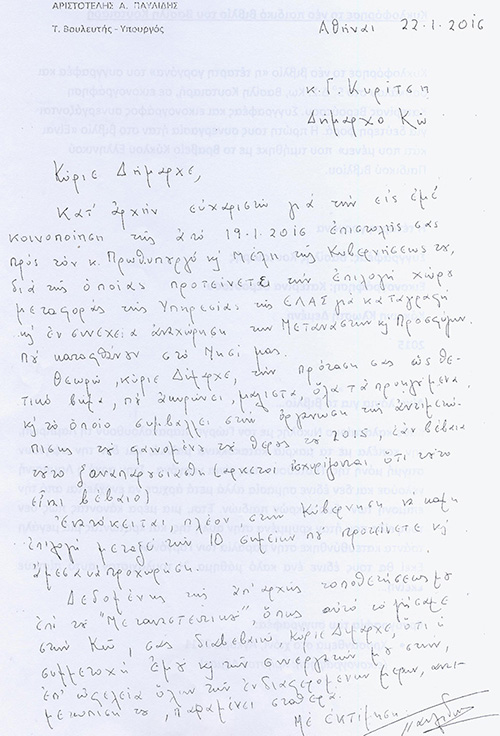 ΑΡΙΣΤΟΤΕΛΗΣ Α. ΠΑΥΛΙΔΗΣ
Τ. Βουλευτής - Υπουργός
Αθήναι 22-1-2016
κ. Γ. Κυρίτση
Δήμαρχο Κω
Κύριε Δήμαρχε,
Κατ' αρχήν ευχαριστώ για την εις εμέ
κοινοποίηση της από 19.1.2016 επιστολής σας
προς τον κ. Πρωθυπουργό κ' Μέλη της Κυβερνήσεως του,
δια της οποίας προτείνετε την επιλογή χώρου
μεταφοράς της Υπηρεσίας της ΕΛΑΣ για καταγραφή
κ' εν συνεχεία αναχώρηση των Μεταναστών κ' Προσφύγων.
που καταφθάνουν στο Νησί μας.
Θεωρώ, κύριε Δήμαρχε, την πρόταση σας ως θε-
τικό βήμα, μάλιστα, όλα τα προηγούμενα
κ' το οποίο συμβάλλει στην οργάνωση της αντιμετώ-
πισης του φαινομένου το θέρος του 2015 εάν βέβαια
τούτο ξαναπαρουσιασθή (αρκετοί ισχυρίζονται ότι τούτο
είναι βέβαιο)
Εναπόκειται, πλέον στην Κυβέρνηση να κάμη
επιλογή μεταξύ των 10 σημείων που προτείνετε κ'
άμεσα να προχωρήση.
Δεδομένης της απ' αρχής τοποθετήσεως μου
επί του "Μεταναστευτικού", όπως αυτό το ζήσαμε
στην Κω, σας διαβεβαιώ, κύριε Δήμαρχε, ότι η
συμμετοχή εμού κ' των συνεργατών μου στην,
επ' ωφελεία όλων των ενδιαφερομένων μερών, αντι-
μετώπιση του, παραμένει σταθερά.
Με εκτίμηση